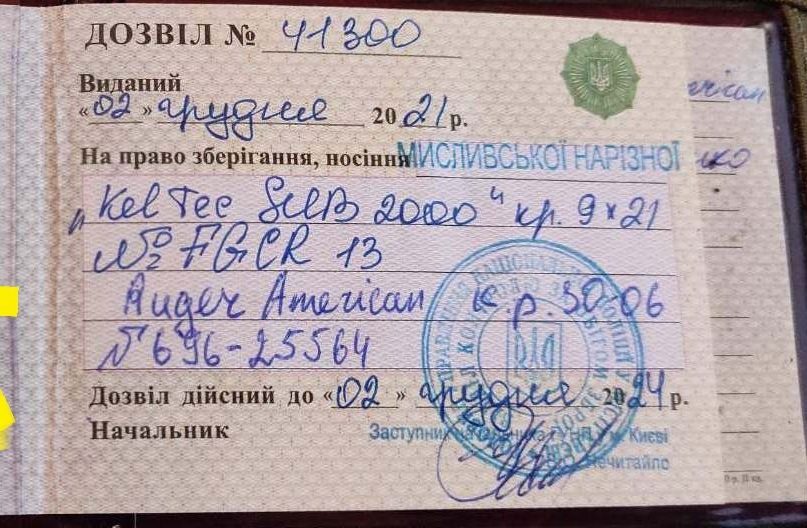 ДОЗВІЛ № 41300
Виданий
«02» грудня 2021 р.
На право зберігання, носіння МИСЛИВСЬКОЇ НАРІЗНОЇ
"Kel Tec SUB 2000" кр. 9x21
№ FGCR 13
Ruger American к.р. 30-06
№ 696-25564
Дозвіл дійсний до «02» грудня 2024 р.
Начальник
Заступник начальника ГУНП у м. Києві
Нечитайло